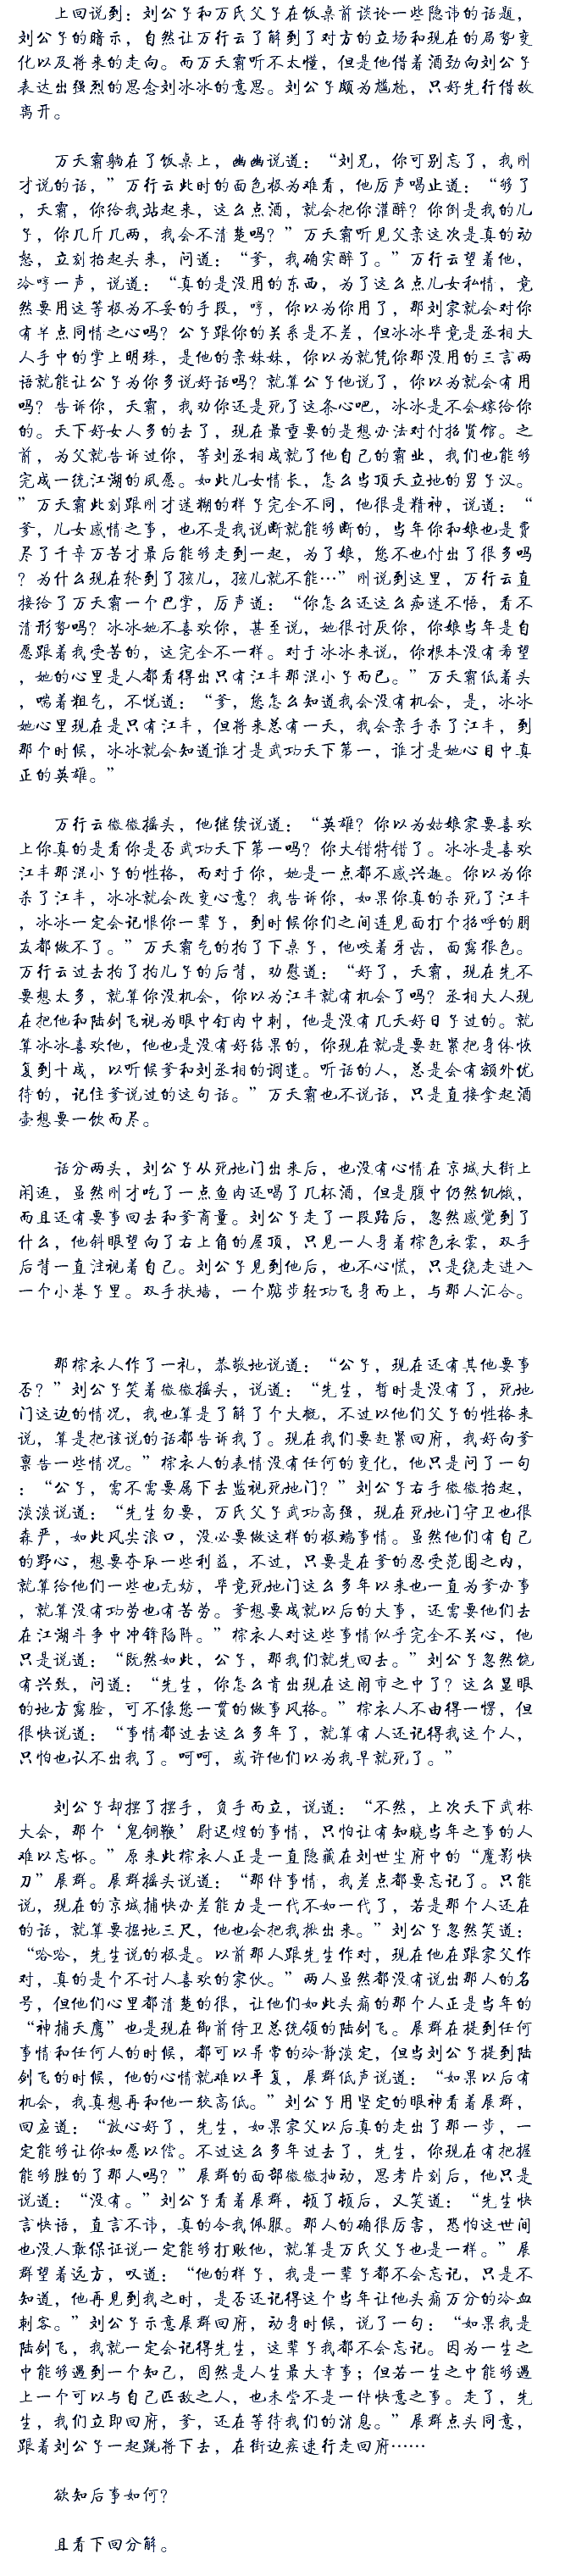 上回说到：刘公子和万氏父子在饭桌前谈论一些隐讳的话题，
刘公子的暗示，自然让万行云了解到了对方的立场和现在的局势变
化以及将来的走向。而万天霸听不太懂，但是他借着酒劲向刘公子
表达出强烈的思念刘冰冰的意思。刘公子颇为尴尬，只好先行借故
离开。
万天霸躺在了饭桌上，幽幽说道：“刘兄，你可别忘了，我刚
才说的话，”万行云此时的面色极为难看，他厉声喝止道：“够了
，天霸，你给我站起来，这么点酒，就会把你灌醉？你倒是我的儿
子，你几斤几两，我会不清楚吗？”万天霸听见父亲这次是真的动
怒，立刻抬起头来，问道：“爹，我确实醉了。”万行云望着他，
冷哼一声，说道：“真的是没用的东西，为了这么点儿女私情，竟
然要用这等极为不妥的手段，哼，你以为你用了，那刘家就会对你
有半点同情之心吗？公子跟你的关系是不差，但冰冰毕竟是丞相大
人手中的掌上明珠，是他的亲妹妹，你以为就凭你那没用的三言两
语就能让公子为你多说好话吗？就算公子他说了，你以为就会有用
吗？告诉你，天霸，我劝你还是死了这条心吧，冰冰是不会嫁给你
的。天下好女人多的去了，现在最重要的是想办法对付招贤馆。之
前，为父就告诉过你，等刘丞相成就了他自己的霸业，我们也能够
完成一统江湖的夙愿。如此儿女情长，怎么当顶天立地的男子汉。
”万天霸此刻跟刚才迷糊的样子完全不同，他很是精神，说道：“
爹，儿女感情之事，也不是我说断就能够断的，当年你和娘也是费
尽了千辛万苦才最后能够走到一起，为了娘，您不也付出了很多吗
？为什么现在轮到了孩儿，孩儿就不能…”刚说到这里，万行云直
接给了万天霸一个巴掌，厉声道：“你怎么还这么痴迷不悟，看不
清形势吗？冰冰她不喜欢你，甚至说，她很讨厌你，你娘当年是自
愿跟着我受苦的，这完全不一样。对于冰冰来说，你根本没有希望
，她的心里是人都看得出只有江丰那混小子而已。”万天霸低着头
，喘着粗气，不悦道：“爹，您怎么知道我会没有机会，是，冰冰
她心里现在是只有江丰，但将来总有一天，我会亲手杀了江丰，到
那个时候，冰冰就会知道谁才是武功天下第一，谁才是她心目中真
正的英雄。”
万行云微微摇头，他继续说道：“英雄？你以为姑娘家要喜欢
上你真的是看你是否武功天下第一吗？你大错特错了。冰冰是喜欢
江丰那混小子的性格，而对于你，她是一点都不感兴趣。你以为你
杀了江丰，冰冰就会改变心意？我告诉你，如果你真的杀死了江丰
，冰冰一定会记恨你一辈子，到时候你们之间连见面打个招呼的朋
友都做不了。”万天霸气的拍了下桌子，他咬着牙齿，面露狠色。
万行云过去拍了拍儿子的后背，劝慰道：“好了，天霸，现在先不
要想太多，就算你没机会，你以为江丰就有机会了吗？丞相大人现
在把他和陆剑飞视为眼中钉肉中刺，他是没有几天好日子过的。就
算冰冰喜欢他，他也是没有好结果的，你现在就是要赶紧把身体恢
复到十成，以听候爹和刘丞相的调遣。听话的人，总是会有额外优
待的，记住爹说过的这句话。”万天霸也不说话，只是直接拿起酒
壶想要一饮而尽。
话分两头，刘公子从死地门出来后，也没有心情在京城大街上
闲逛，虽然刚才吃了一点鱼肉还喝了几杯酒，但是腹中仍然饥饿，
而且还有要事回去和爹商量。刘公子走了一段路后，忽然感觉到了
什么，他斜眼望向了右上角的屋顶，只见一人身着棕色衣裳，双手
后背一直注视着自己。刘公子见到他后，也不心慌，只是绕走进入
一个小巷子里。双手扶墙，一个踮步轻功飞身而上，与那人汇合。
那棕衣人作了一礼，恭敬地说道：“公子，现在还有其他要事
否？”刘公子笑着微微摇头，说道：“先生，暂时是没有了，死地
门这边的情况，我也算是了解了个大概，不过以他们父子的性格来
说，算是把该说的话都告诉我了。现在我们要赶紧回府，我好向爹
禀告一些情况。”棕衣人的表情没有任何的变化，他只是问了一句
：“公子，需不需要属下去监视死地门？”刘公子右手微微抬起，
淡淡说道：“先生勿要，万氏父子武功高强，现在死地门守卫也很
森严，如此风尖浪口，没必要做这样的极端事情。虽然他们有自己
的野心，想要夺取一些利益，不过，只要是在爹的忍受范围之内，
就算给他们一些也无妨，毕竟死地门这么多年以来也一直为爹办事
，就算没有功劳也有苦劳。爹想要成就以后的大事，还需要他们去
在江湖斗争中冲锋陷阵。”棕衣人对这些事情似乎完全不关心，他
只是说道：“既然如此，公子，那我们就先回去。”刘公子忽然饶
有兴致，问道：“先生，你怎么肯出现在这闹市之中了？这么显眼
的地方露脸，可不像您一贯的做事风格。”棕衣人不由得一愣，但
很快说道：“事情都过去这么多年了，就算有人还记得我这个人，
只怕也认不出我了。呵呵，或许他们以为我早就死了。”
刘公子却摆了摆手，负手而立，说道：“不然，上次天下武林
大会，那个‘鬼铜鞭’尉迟煌的事情，只怕让有知晓当年之事的人
难以忘怀。”原来此棕衣人正是一直隐藏在刘世尘府中的“魔影快
刀”展群。展群摇头说道：“那件事情，我差点都要忘记了。只能
说，现在的京城捕快办差能力是一代不如一代了，若是那个人还在
的话，就算要掘地三尺，他也会把我揪出来。”刘公子忽然笑道：
“哈哈，先生说的极是。以前那人跟先生作对，现在他在跟家父作
对，真的是个不讨人喜欢的家伙。”两人虽然都没有说出那人的名
号，但他们心里都清楚的很，让他们如此头痛的那个人正是当年的
“神捕天鹰”也是现在御前侍卫总统领的陆剑飞。展群在提到任何
事情和任何人的时候，都可以异常的冷静淡定，但当刘公子提到陆
剑飞的时候，他的心情就难以平复，展群低声说道：“如果以后有
机会，我真想再和他一较高低。”刘公子用坚定的眼神看着展群，
回应道：“放心好了，先生，如果家父以后真的走出了那一步，一
定能够让你如愿以偿。不过这么多年过去了，先生，你现在有把握
能够胜的了那人吗？”展群的面部微微抽动，思考片刻后，他只是
说道：“没有。”刘公子看着展群，顿了顿后，又笑道：“先生快
言快语，直言不讳，真的令我佩服。那人的确很厉害，恐怕这世间
也没人敢保证说一定能够打败他，就算是万氏父子也是一样。”展
群望着远方，叹道：“他的样子，我是一辈子都不会忘记，只是不
知道，他再见到我之时，是否还记得这个当年让他头痛万分的冷血
刺客。”刘公子示意展群回府，动身时候，说了一句：“如果我是
陆剑飞，我就一定会记得先生，这辈子我都不会忘记。因为一生之
中能够遇到一个知己，固然是人生最大幸事；但若一生之中能够遇
上一个可以与自己匹敌之人，也未尝不是一件快意之事。走了，先
生，我们立即回府，爹，还在等待我们的消息。”展群点头同意，
跟着刘公子一起跳将下去，在街边疾速行走回府……
欲知后事如何？
且看下回分解。